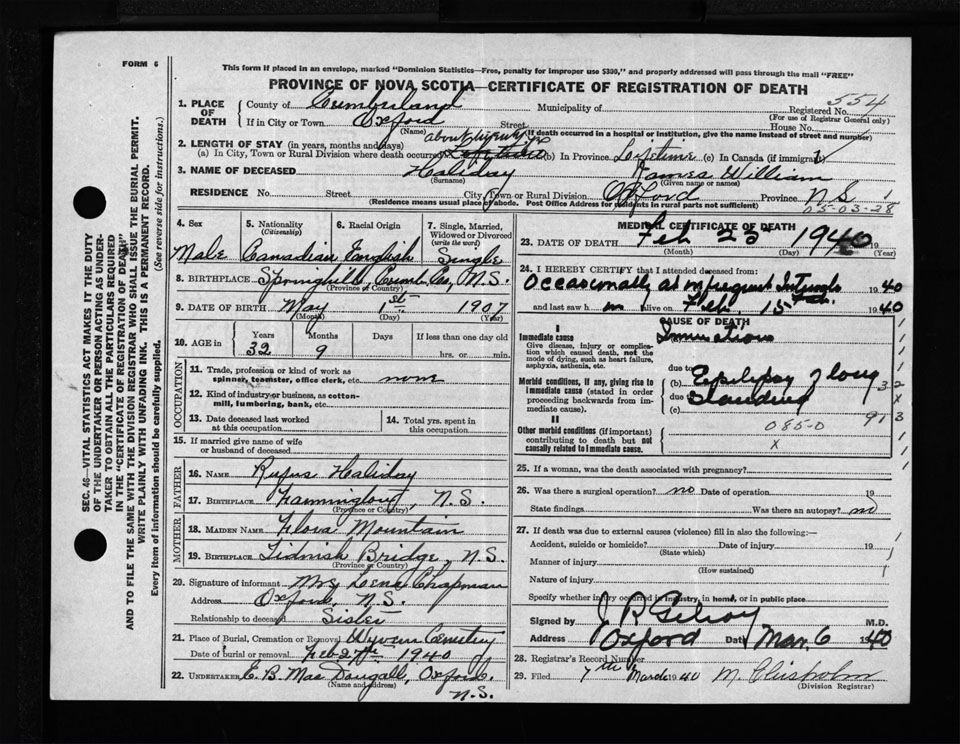 FORM 6
This form if placed in an envelope, marked "Dominion Statistics—Free, penalty for improper use $300," and properly addressed will pass through the mail "FREE"
PROVINCE OF NOVA SCOTIA—CERTIFICATE OF REGISTRATION OF DEATH
SEC. 46—VITAL STATISTICS ACT MAKES IT THE DUTY
OF THE UNDERTAKER OR PERSON ACTING AS UNDER-
TAKER TO OBTAIN ALL THE PARTICULARS REQUIRED
IN THE "CERTIFICATE OF REGISTRATION OF DEATH"
AND TO FILE THE SAME WITH THE DIVISION REGISTRAR WHO SHALL ISSUE THE BURIAL PERMIT.
WRITE PLAINLY WITH UNFADING INK. THIS IS A PERMANENT RECORD.
Every item of information should be carefully supplied. (See reverse side for instructions.)
1. PLACE OF DEATH
County of Cumberland Municipality of Registered No. 554
(For use of Registrar General only)
If in City or Town Oxford Street House No.
(Name) (If death occurred in a hospital or institution, give the name instead of street and number)
2. LENGTH OF STAY (in years, months and days) about twenty yrs
(a) In City, Town or Rural Division where death occurred (b) In Province Lifetime (c) In Canada (if immigrant)
3. NAME OF DECEASED Haliday James William
(Surname) (Given name or names)
RESIDENCE No. Street City, Town or Rural Division Oxford Province N S
(Residence means usual place of abode. Post Office Address for residents in rural parts not sufficient)
05-03-28
4. Sex 5. Nationality (Citizenship) 6. Racial Origin 7. Single, Married, Widowed or Divorced (write the word)
Male Canadian English Single
8. BIRTHPLACE Springhill, Cumb. Co., N.S.
(Province or Country)
9. DATE OF BIRTH May 1st 1907
(Month) (Day) (Year)
10. AGE in Years Months Days If less than one day old
32 9 hrs. or min.
OCCUPATION
11. Trade, profession or kind of work as spinner, teamster, office clerk, etc. none
12. Kind of industry or business, as cotton-mill, lumbering, bank, etc.
13. Date deceased last worked at this occupation 14. Total yrs. spent in this occupation
15. If married give name of wife or husband of deceased
FATHER
16. NAME Rufus Haliday
17. BIRTHPLACE N.S.
(Province or Country)
MOTHER
18. MAIDEN NAME Flora Mountain
19. BIRTHPLACE Tidnish Bridge, N.S.
(Province or Country)
20. Signature of informant Mrs Lena Chapman
Address Oxford, N.S.
Relationship to deceased Sister
21. Place of Burial, Cremation or Removal Wyvern Cemetery
Date of burial or removal Feb 27th 1940
22. UNDERTAKER E. B. Mac Dougall, Oxford. N.S.
(Name and address)
MEDICAL CERTIFICATE OF DEATH
23. DATE OF DEATH Feb 25 1940 19
(Month) (Day) (Year)
24. I HEREBY CERTIFY that I attended deceased from:
Occasionally at infrequent Intervals 1940
and last saw h m alive on Feb. 15 1940
CAUSE OF DEATH
I
Immediate cause
Give disease, injury or complication which caused death, not the mode of dying, such as heart failure, asphyxia, asthenia, etc.
Inanition
due to
Morbid conditions, if any, giving rise to immediate cause (stated in order proceeding backwards from immediate cause).
(b) Epilepsy of long
due to Standing
(c)
32
X
913
II
Other morbid conditions (if important) contributing to death but not causally related to immediate cause.
085-0
X
25. If a woman, was the death associated with pregnancy?
26. Was there a surgical operation? no Date of operation 19
State findings Was there an autopsy? no
27. If death was due to external causes (violence) fill in also the following:—
Accident, suicide or homicide? Date of injury 19
(State which)
Manner of injury
(How sustained)
Nature of injury
Specify whether injury occurred in industry, in home, or in public place
Signed by J R Gilroy M.D.
Address Oxford Date Mar. 6 1940
28. Registrar's Record Number
29. Filed 7th March 1940 M. Chisholm
(Division Registrar)